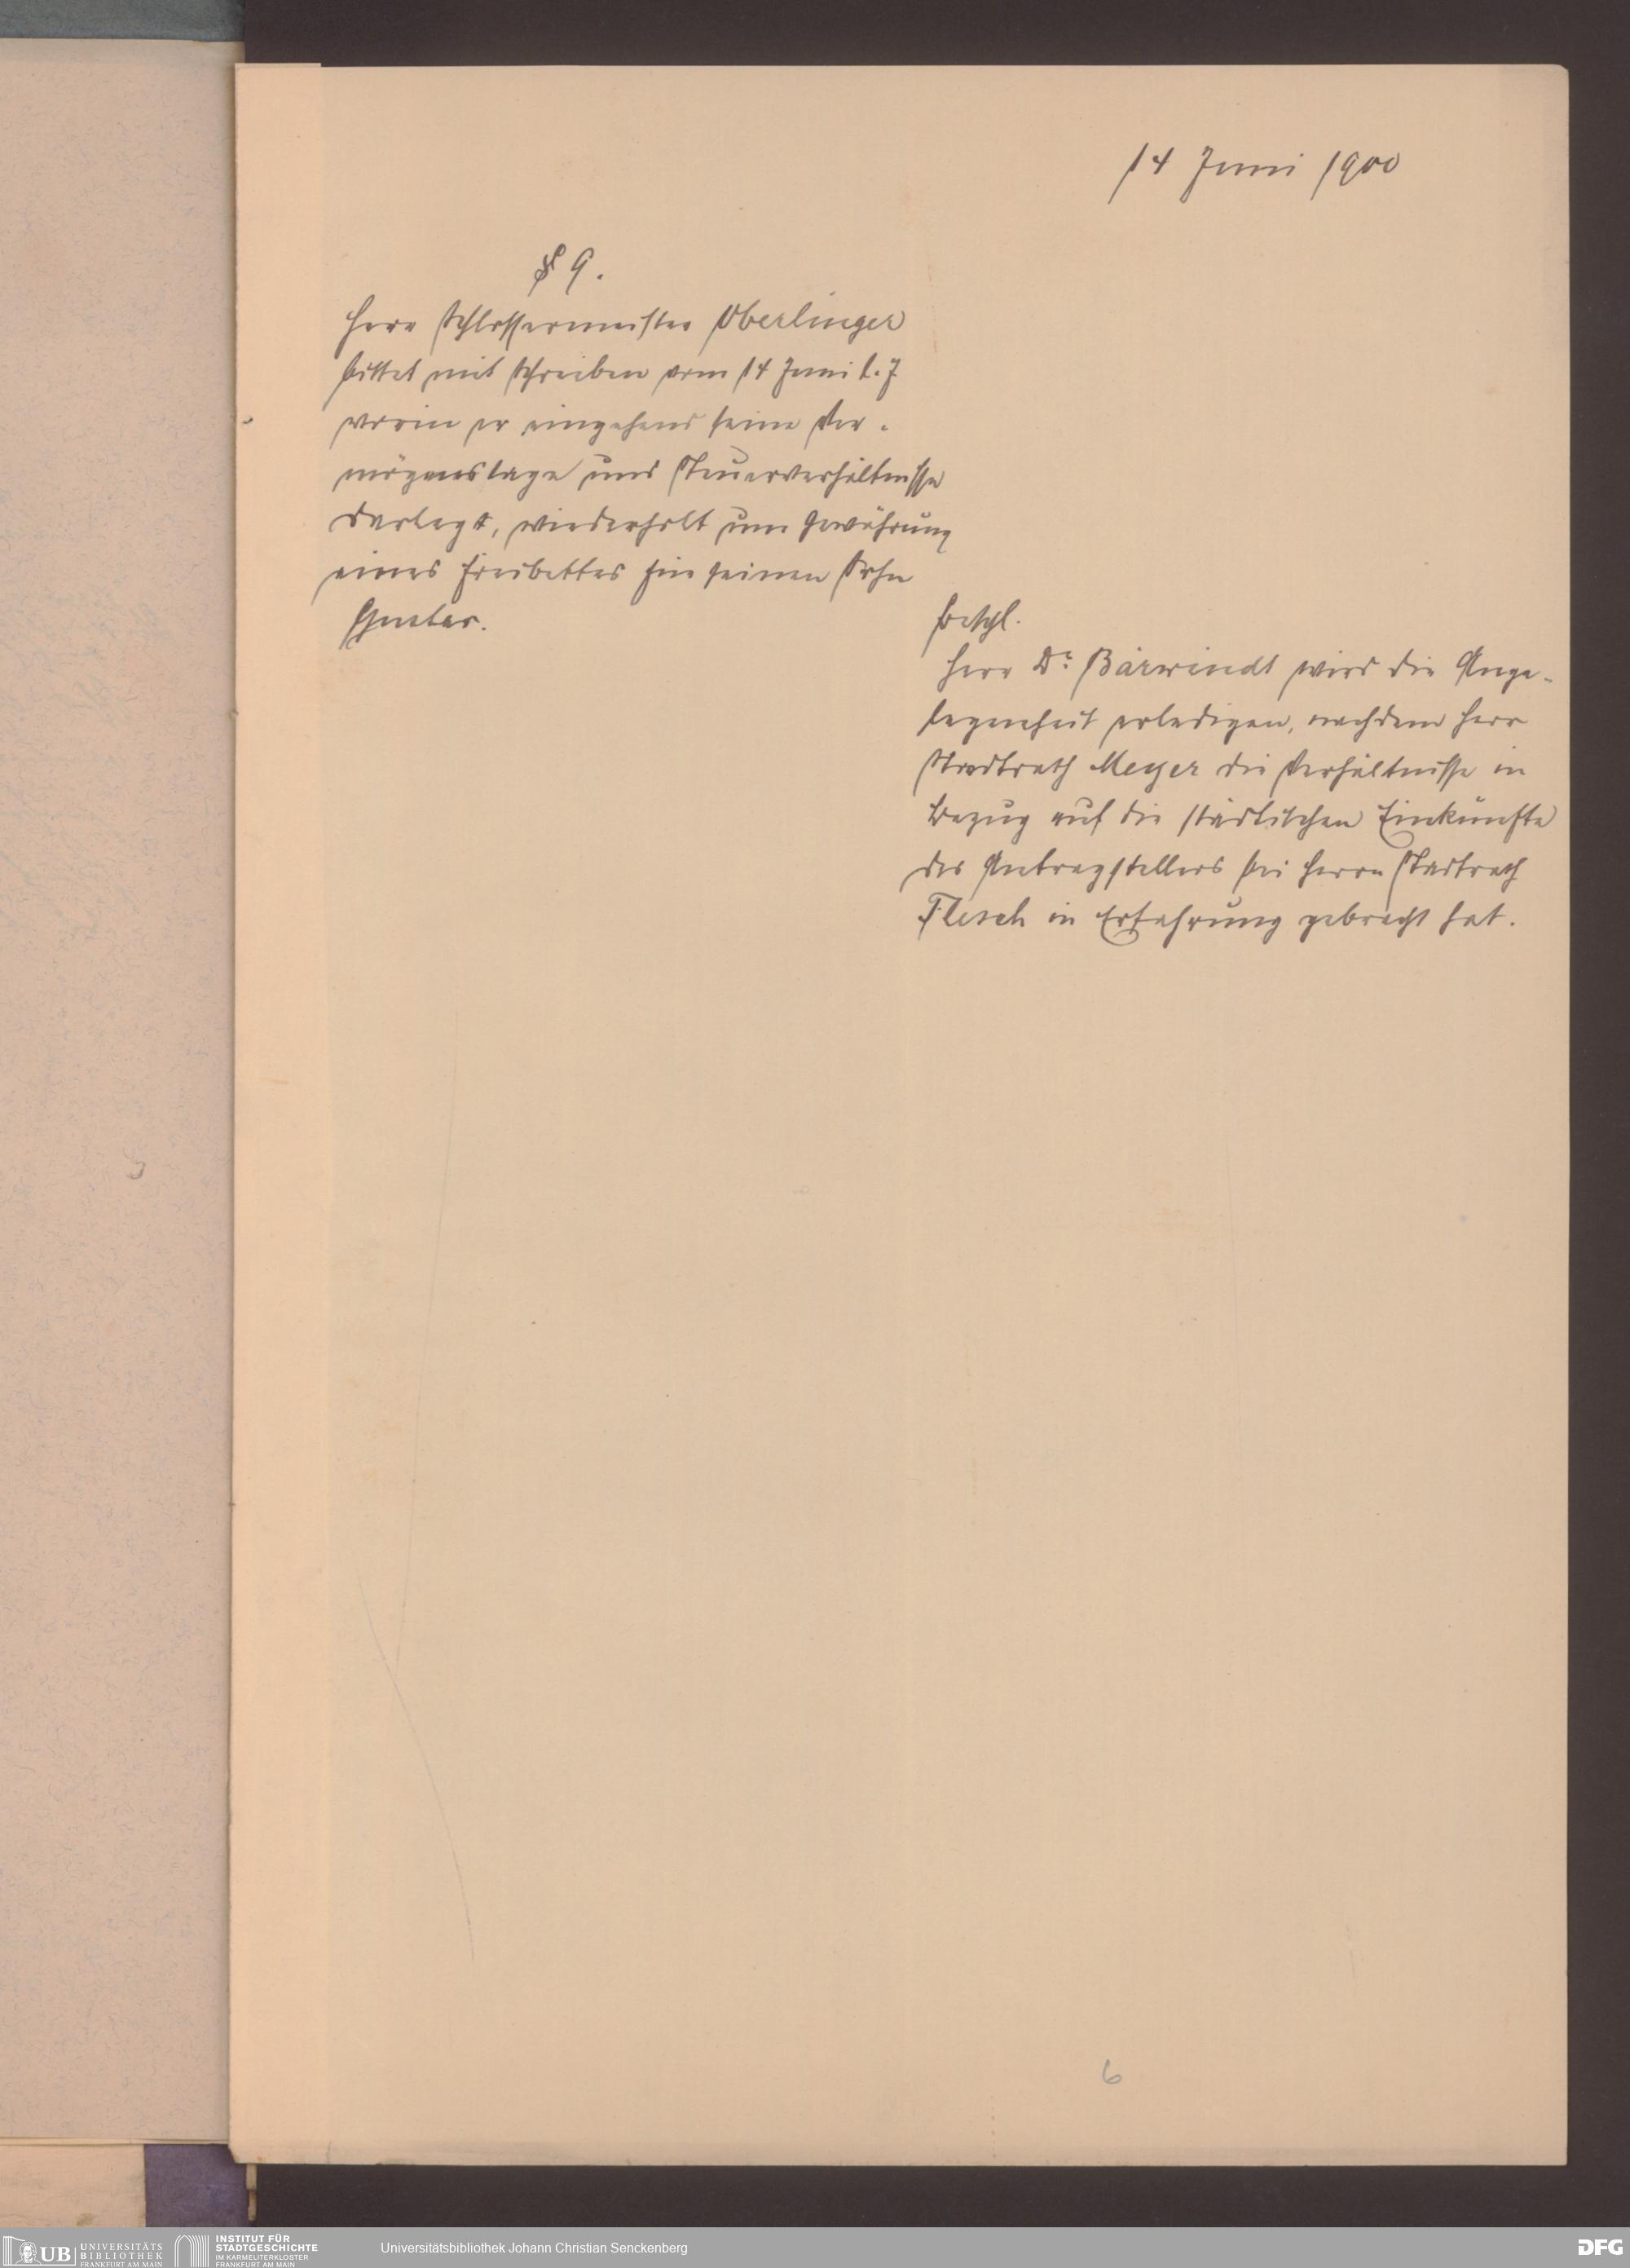 14 Juni 1900
§ 9.
Herr Schlossermeister Oberlinger
bittet mit Schreiben vom 14 Juni l. J
worin er eingehend seine Ver-
mögenslage und Steuerverhältnisse
darlegt, wiederholt um Gewährung
eines Freibettes für seinen Sohn
Gustav.
Beschl.
Herr Dr. Bärwindt wird die Ange-
legenheit erledigen, nachdem Herr
Stadtrath Meyer die Verhältnisse in
Bezug auf die städtischen Einkünfte
des Antragstellers bei Herrn Stadtrath
Flesch in Erfahrung gebracht hat.
6
UB UNIVERSITÄTS
BIBLIOTHEK
FRANKFURT AM MAIN
INSTITUT FÜR
STADTGESCHICHTE
IM KARMELITERKLOSTER
FRANKFURT AM MAIN
Universitätsbibliothek Johann Christian Senckenberg
DFG